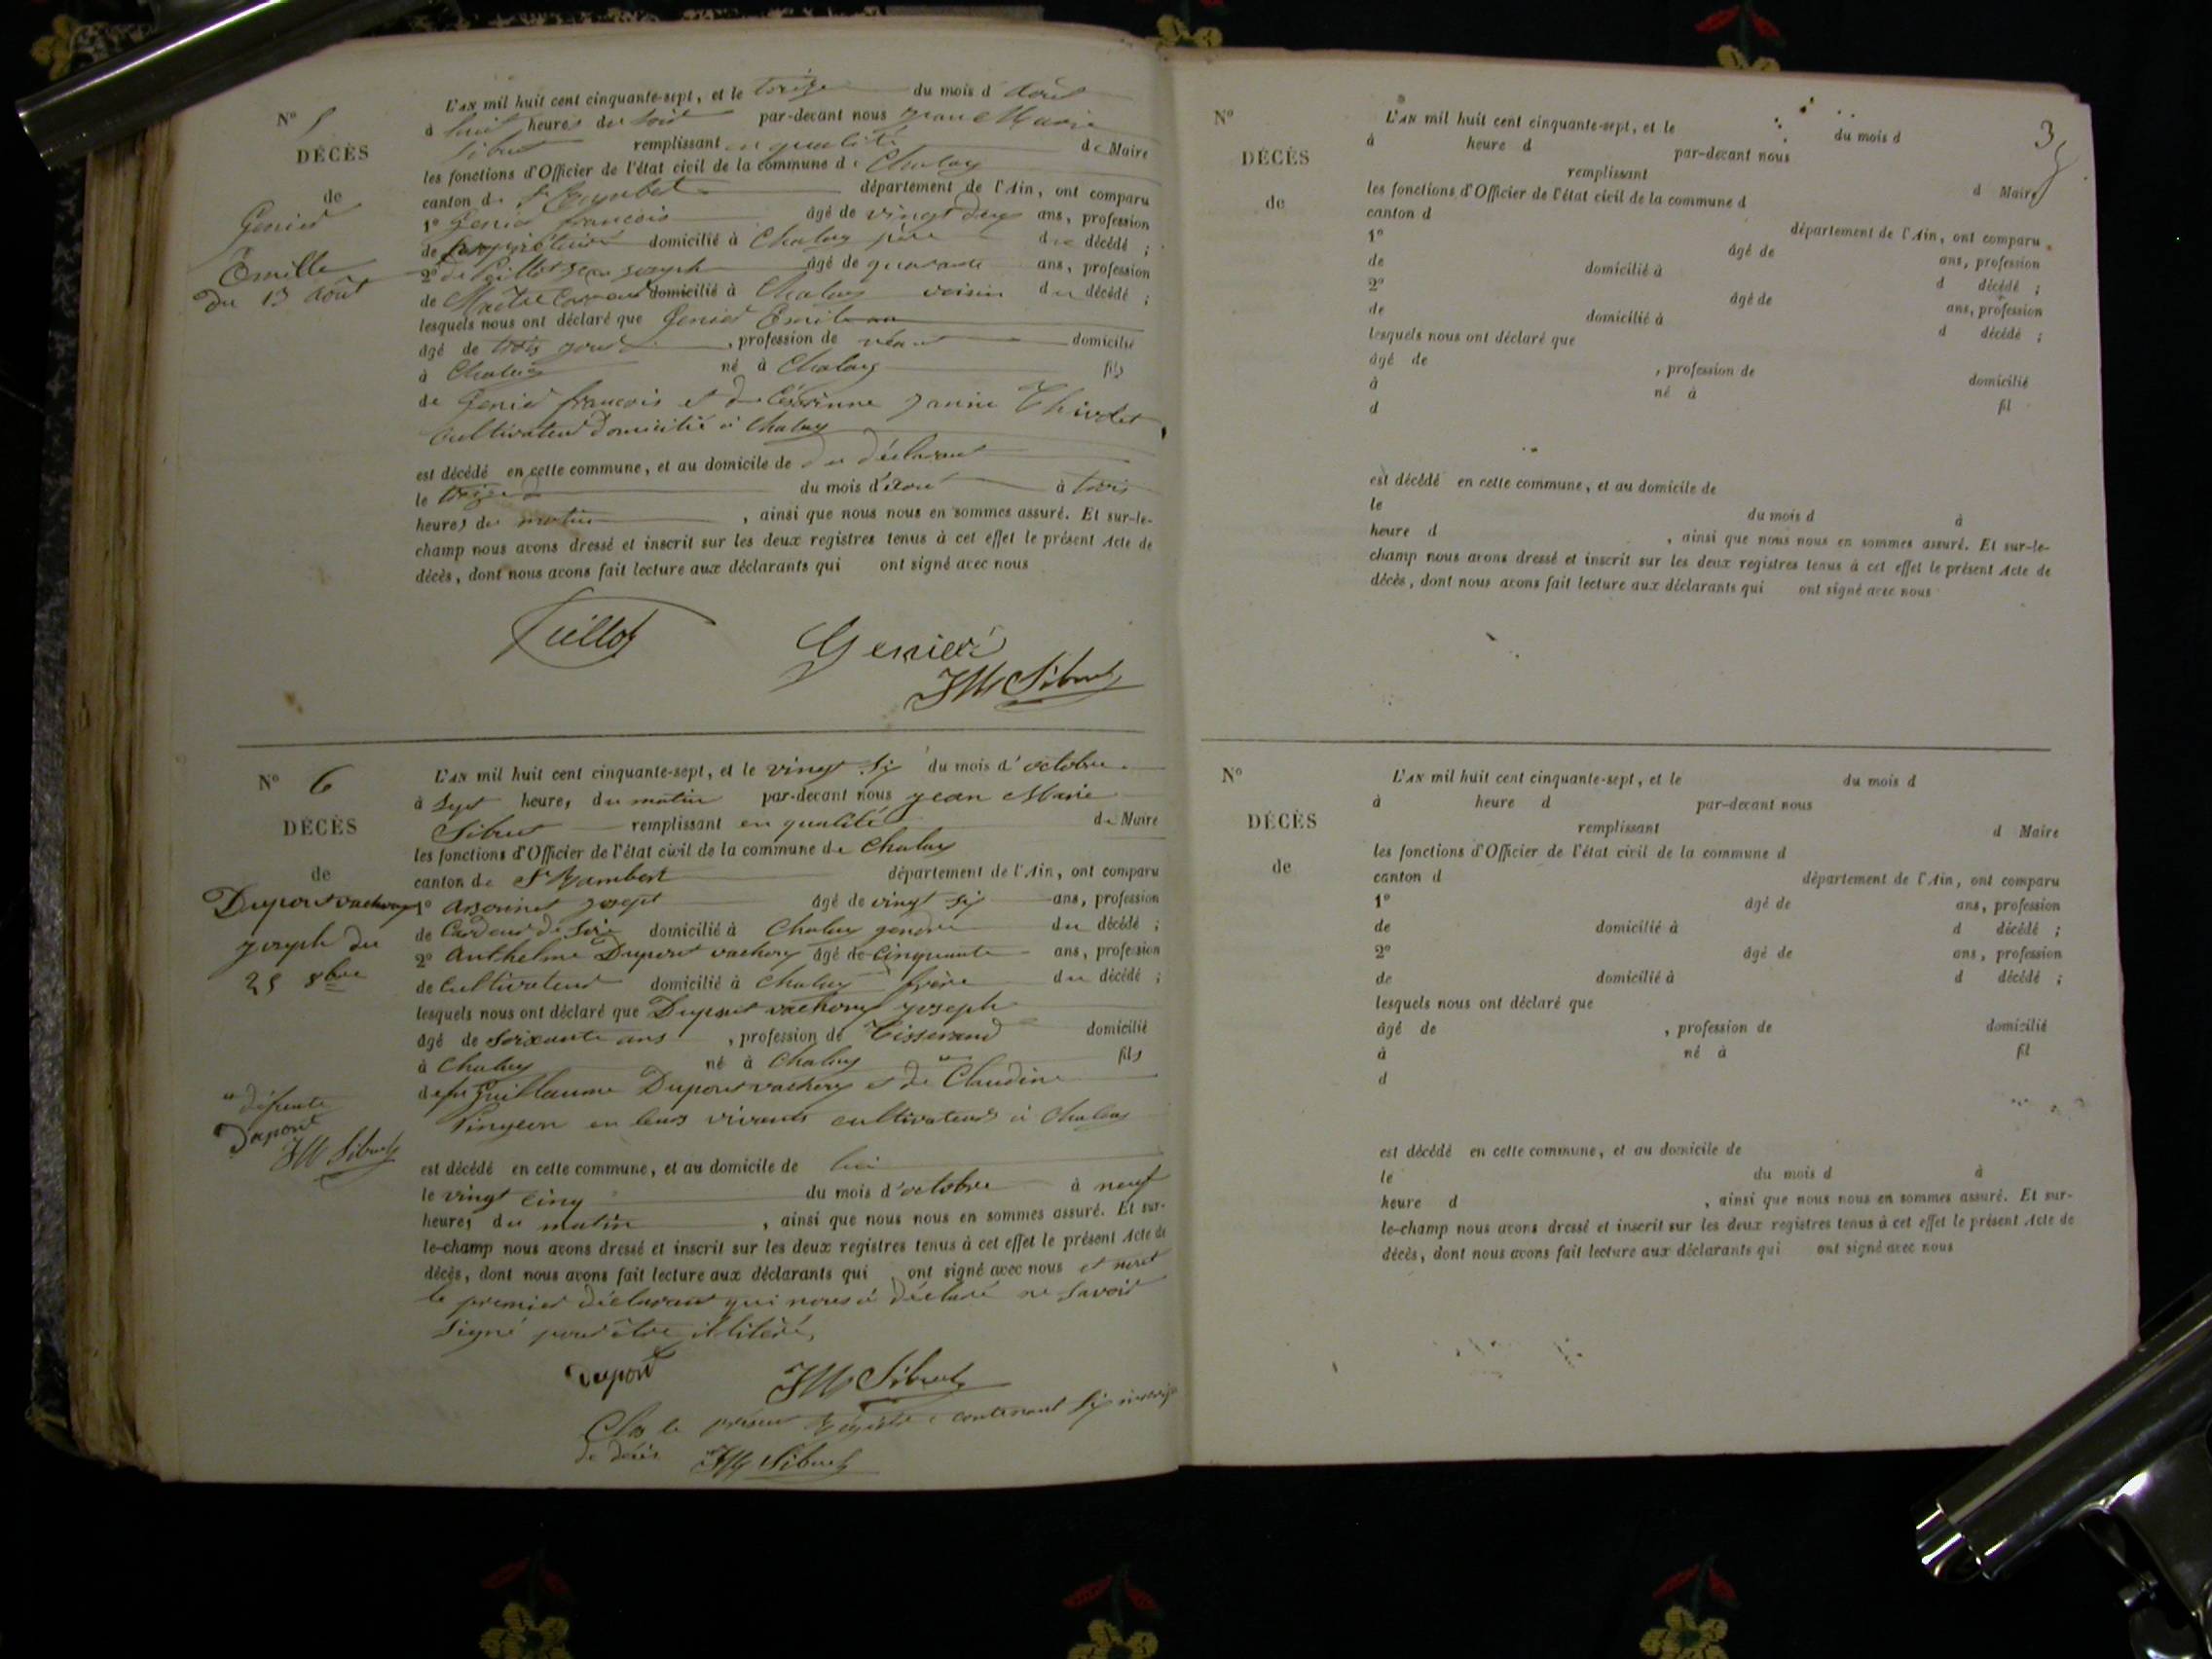 N° 5
DÉCÈS
de
Genier
Emille
du 13 Août
L'AN mil huit cent cinquante-sept, et le treize du mois d'Août
à huit heures du soir par-devant nous jean Marie
Sibuet remplissant en qualité de Maire
les fonctions d'Officier de l'état civil de la commune de Chaley
canton de St Rambert département de l'Ain, ont comparu
1° Genier francois âgé de vingt deux ans, profession
de propriétaire domicilié à Chaley père du décédé ;
2° jean joseph âgé de quarante ans, profession
de Maître domicilié à Chaley voisin du décédé ;
lesquels nous ont déclaré que Genier Emile
âgé de trois jours , profession de néant domicilié
à Chaley né à Chaley fils
de Genier francois et de janine Thivolet
Cultivateur domicilié à Chaley
est décédé en cette commune, et au domicile de du déclarant
le treize du mois d'Août à trois
heures du matin , ainsi que nous nous en sommes assuré. Et sur-le-
champ nous avons dressé et inscrit sur les deux registres tenus à cet effet le présent Acte de
décès, dont nous avons fait lecture aux déclarants qui ont signé avec nous
Genier
JM Sibuet
N° 6
DÉCÈS
de
Dupont vachon
joseph du
25 8bre
L'AN mil huit cent cinquante-sept, et le vingt six du mois d'octobre
à sept heures du matin par-devant nous jean Marie
Sibuet remplissant en qualité de Maire
les fonctions d'Officier de l'état civil de la commune de Chaley
canton de St Rambert département de l'Ain, ont comparu
1° josept âgé de vingt six ans, profession
de Cardeur de soie domicilié à Chaley gendre du décédé ;
2° Anthelme Dupont vachon âgé de cinquante ans, profession
de Cultivateur domicilié à Chaley frère du décédé ;
lesquels nous ont déclaré que Dupont vachon joseph
âgé de soixante ans , profession de Tisserand domicilié
à Chaley né à Chaley fils
de fu Guillaume Dupont vachon et de " Claudine
Pingeon en leurs vivants cultivateurs à Chaley
" défunte
Dupont
JM Sibuet
est décédé en cette commune, et au domicile de lui
le vingt cinq du mois d'octobre à neuf
heures du matin , ainsi que nous nous en sommes assuré. Et sur-
le-champ nous avons dressé et inscrit sur les deux registres tenus à cet effet le présent Acte de
décès, dont nous avons fait lecture aux déclarants qui ont signé avec nous et
le premier déclarant qui nous a déclaré ne savoir
signé pour être illitéré,
Dupont
JM Sibuet
Clos le présent Régistre contenant six
de décès JM Sibuet
3
N°
DÉCÈS
de
L'AN mil huit cent cinquante-sept, et le du mois d
à heure d par-devant nous
remplissant d Maire
les fonctions d'Officier de l'état civil de la commune d
canton d département de l'Ain, ont comparu
1° âgé de ans, profession
de domicilié à d décédé ;
2° âgé de ans, profession
de domicilié à d décédé ;
lesquels nous ont déclaré que
âgé de , profession de domicilié
à né à fil
d
est décédé en cette commune, et au domicile de
le du mois d à
heure d , ainsi que nous nous en sommes assuré. Et sur-le-
champ nous avons dressé et inscrit sur les deux registres tenus à cet effet le présent Acte de
décès, dont nous avons fait lecture aux déclarants qui ont signé avec nous
N°
DÉCÈS
de
L'AN mil huit cent cinquante-sept, et le du mois d
à heure d par-devant nous
remplissant d Maire
les fonctions d'Officier de l'état civil de la commune d
canton d département de l'Ain, ont comparu
1° âgé de ans, profession
de domicilié à d décédé ;
2° âgé de ans, profession
de domicilié à d décédé ;
lesquels nous ont déclaré que
âgé de , profession de domicilié
à né à fil
d
est décédé en cette commune, et au domicile de
le du mois d à
heure d , ainsi que nous nous en sommes assuré. Et sur-
le-champ nous avons dressé et inscrit sur les deux registres tenus à cet effet le présent Acte de
décès, dont nous avons fait lecture aux déclarants qui ont signé avec nous